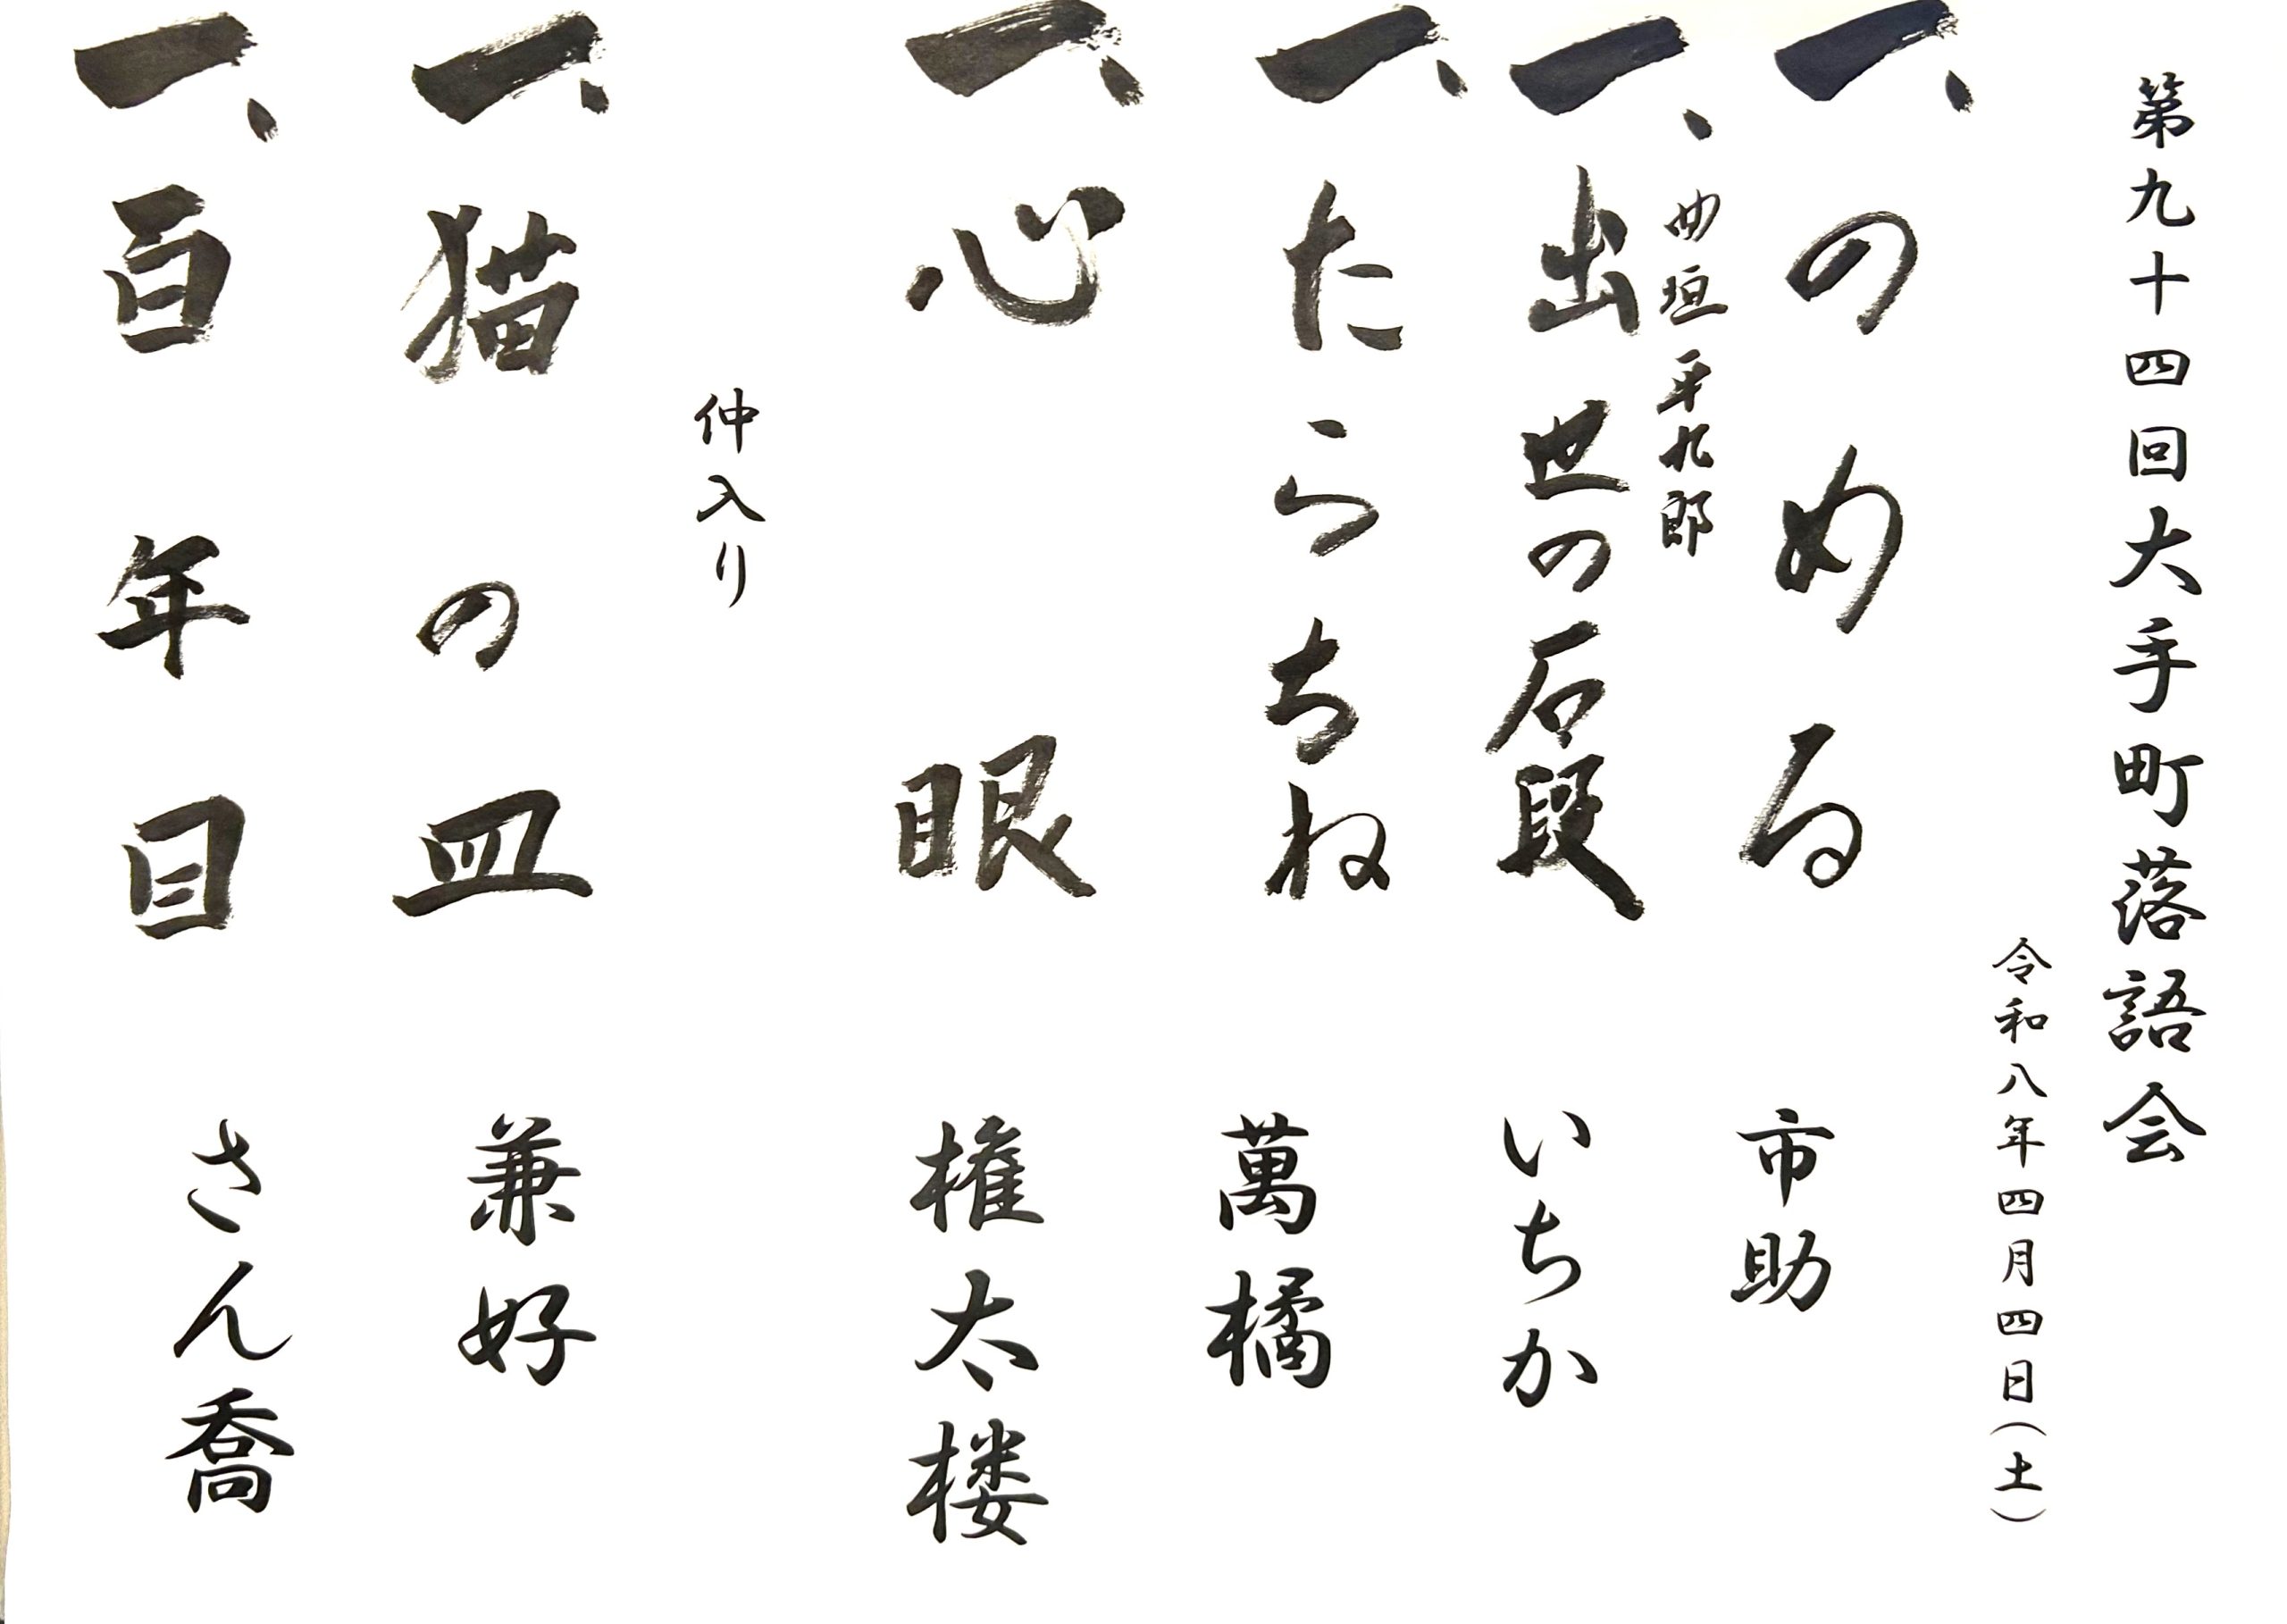 第九十四回大手町落語会
令和八年四月四日(土)
一、のめる 市助
一、曲垣平九郎
出世の石段 いちか
一、たらちね 萬橘
一、心眼 権太楼
仲入り
一、猫の皿 兼好
一、百年目 さん喬